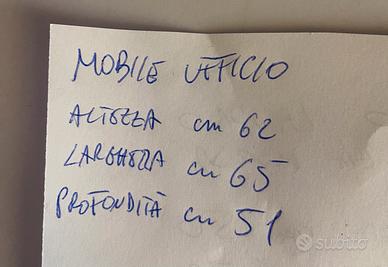 MOBILE UFFICIO
ALTEZZA cm 62
LARGHEZZA cm 65
PROFONDITÀ cm 51
subito